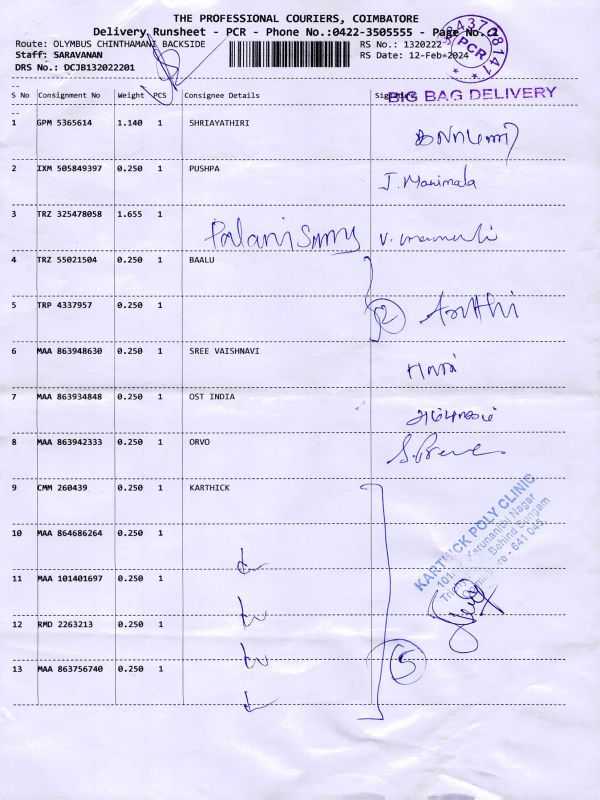 THE PROFESSIONAL COURIERS, COIMBATORE
Delivery Runsheet - PCR - Phone No.:0422-3505555 - Page No.:1
Route: OLYMBUS CHINTHAMANI BACKSIDE
RS No.: 1320222
Staff: SARAVANAN
RS Date: 12-Feb-2024
DRS No.: DCJB132022201
PCR
BIG BAG DELIVERY
S No Consignment No Weight PCS Consignee Details Signature
1 GPM 5365614 1.140 1 SHRIAYATHIRI
2 IXM 505849397 0.250 1 PUSHPA J. Manimala
3 TRZ 325478058 1.655 1
4 TRZ 55021504 0.250 1 BAALU
5 TRP 4337957 0.250 1 2
6 MAA 863948630 0.250 1 SREE VAISHNAVI
7 MAA 863934848 0.250 1 OST INDIA
8 MAA 863942333 0.250 1 ORVO
9 CMM 260439 0.250 1 KARTHICK
10 MAA 864686264 0.250 1
11 MAA 101401697 0.250 1
12 RMD 2263213 0.250 1
13 MAA 863756740 0.250 1 5
KARTHICK POLY CLINIC
Karunanithi Nagar
Behind Sungam
641 045